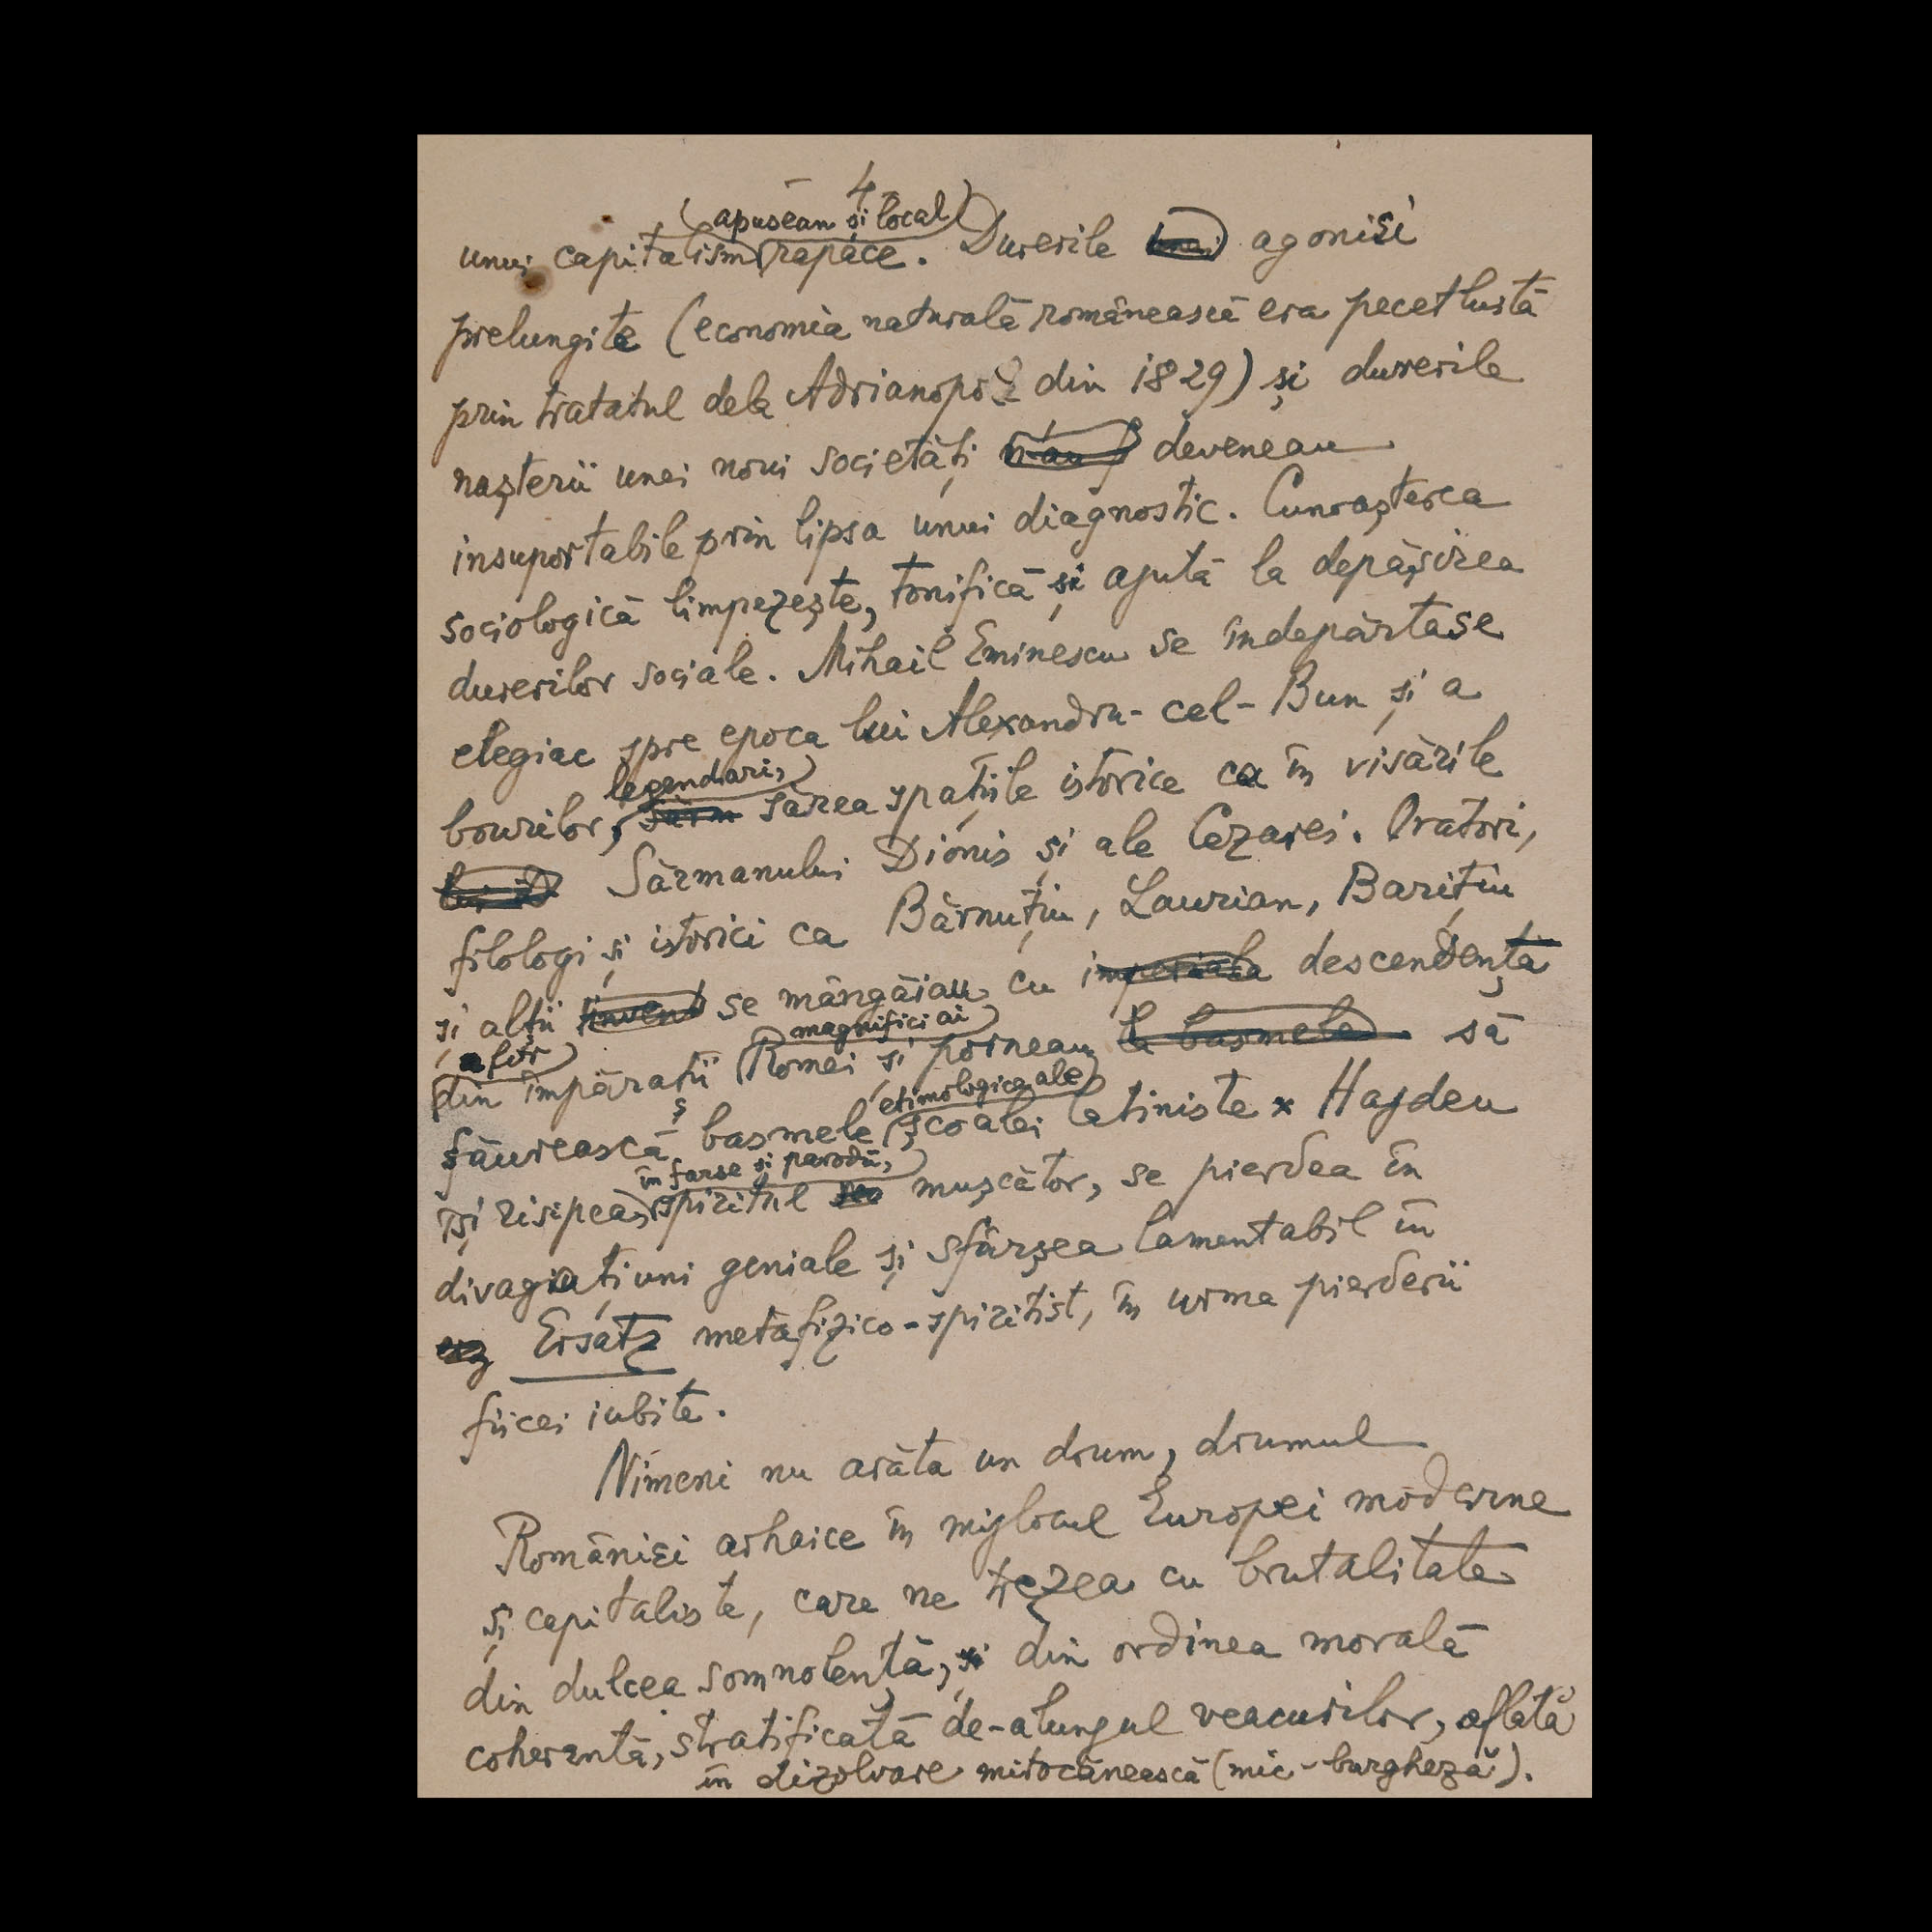 – 4
(apusean și local)
unui capitalism rapace. Durerile agoniei
prelungite (economia naturală românească era pecetluită
prin tratatul dela Adrianopol din 1829) și durerile
nașterii unei noui societăți deveneau
insuportabile prin lipsa unui diagnostic. Cunoașterea
sociologică limpezește, tonifică și ajută la depășirea
durerilor sociale. Mihail Eminescu se îndepărtase
elegiac spre epoca lui Alexandru-cel-Bun și a
legendari,
bourilor, sărea spațiile istorice ca în visările
Sărmanului Dionis și ale Cezarei. Oratori,
filologi și istorici ca Bărnuțiu, Laurian, Barițiu
și alții se mângâiau cu imperiala descendența
a lor magnifici ai
din împărații Romei și porneau la basmele să
etimologice ale
făurească basmele școalei latiniste × Hajdeu
în farse și parodii,
își risipea spiritul mușcător, se pierdea în
divagațiuni geniale și sfârșea lamentabil în
Ersatz metafizico-spiritist, în urma pierderii
fiicei iubite.
Nimeni nu arăta un drum, drumul
României arhaice în mijlocul Europei moderne
și capitaliste, care ne trezea cu brutalitate
din dulcea somnolență, și din ordinea morală
coherentă, stratificată de-alungul veacurilor, aflată
în dizolvare mitocănească (mic-burgheză).